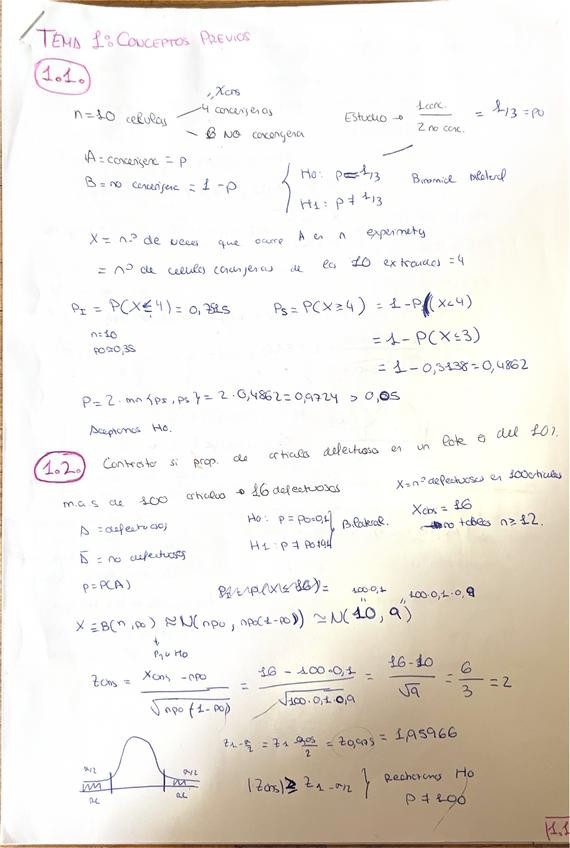 TEMA 1: CONCEPTOS PREVIOS
1.1.
Xobs
n=10 celulas
4 cancerigeras
6 NO cancerigera
Estudio → 1 canc. / 2 no canc. = 1/3 = p0
A = cancerigera = p
B = no cancerigera = 1-p
H0: p = 1/3
H1: p ≠ 1/3
Binomial bilateral
X = nº de veces que ocurre A en n experimetos
= nº de celulas cancerigeras de las 10 extraidas = 4
PI = P(X≤4) = 0,7515
n=10
p0≈0,35
PS = P(X≥4) = 1-P(X<4)
= 1-P(X≤3)
= 1-0,5138 = 0,4862
P = 2·min{PI, PS} = 2·0,4862 = 0,9724 > 0,05
Aceptamos H0.
1.2. Contraste si prop. de articulos defectuosos en un lote es del 10%.
mas de 100 articulos → 16 defectuosos
X = nº defectuosos en 100 articulos
Xobs = 16
no tablas n≥12.
A = defectuosos
A̅ = no defectuosos
p = P(A)
H0: p = p0 = 0,1
H1: p ≠ p0 ≠ 0,1
Bilateral.
100·0,1
100·0,1·0,9
X ≡ B(n, p0) ≈ N(np0, np0(1-p0)) ≃ N(10, 9)
Zobs = (Xobs - np0) / √(np0(1-p0)) = (16 - 100·0,1) / √(100·0,1·0,9) = (16-10) / √9 = 6/3 = 2
Z1-α/2 = Z1-0,05/2 = Z0,975 = 1,95966
α/2
α/2
|Zobs| ≥ Z1-α/2 } Rechazamos H0
1.1